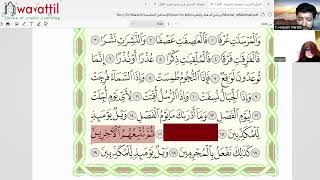 wavattil
Quran & Arabic Learning
وَالْمُرْسَلَٰتِ عُرْفًا ١ فَالْعَٰصِفَٰتِ عَصْفًا ٢ وَالنَّٰشِرَٰتِ نَشْرًا ٣
فَالْفَٰرِقَٰتِ فَرْقًا ٤ فَالْمُلْقِيَٰتِ ذِكْرًا ٥ عُذْرًا أَوْ نُذْرًا ٦ إِنَّمَا
تُوعَدُونَ لَوَٰقِعٌ ٧ فَإِذَا النُّجُومُ طُمِسَتْ ٨ وَإِذَا السَّمَآءُ فُرِجَتْ ٩
وَإِذَا الْجِبَالُ نُسِفَتْ ١٠ وَإِذَا الرُّسُلُ أُقِّتَتْ ١١ لِأَيِّ يَوْمٍ أُجِّلَتْ ١٢
لِيَوْمِ الْفَصْلِ ١٣ وَمَآ أَدْرَىٰكَ مَا يَوْمُ الْفَصْلِ ١٤ وَيْلٌ يَوْمَئِذٍ
لِّلْمُكَذِّبِينَ ١٥ ثُمَّ نُتْبِعُهُمُ الْءَاخِرِينَ ١٧
كَذَٰلِكَ نَفْعَلُ بِالْمُجْرِمِينَ ١٨ وَيْلٌ يَوْمَئِذٍ لِّلْمُكَذِّبِينَ ١٩